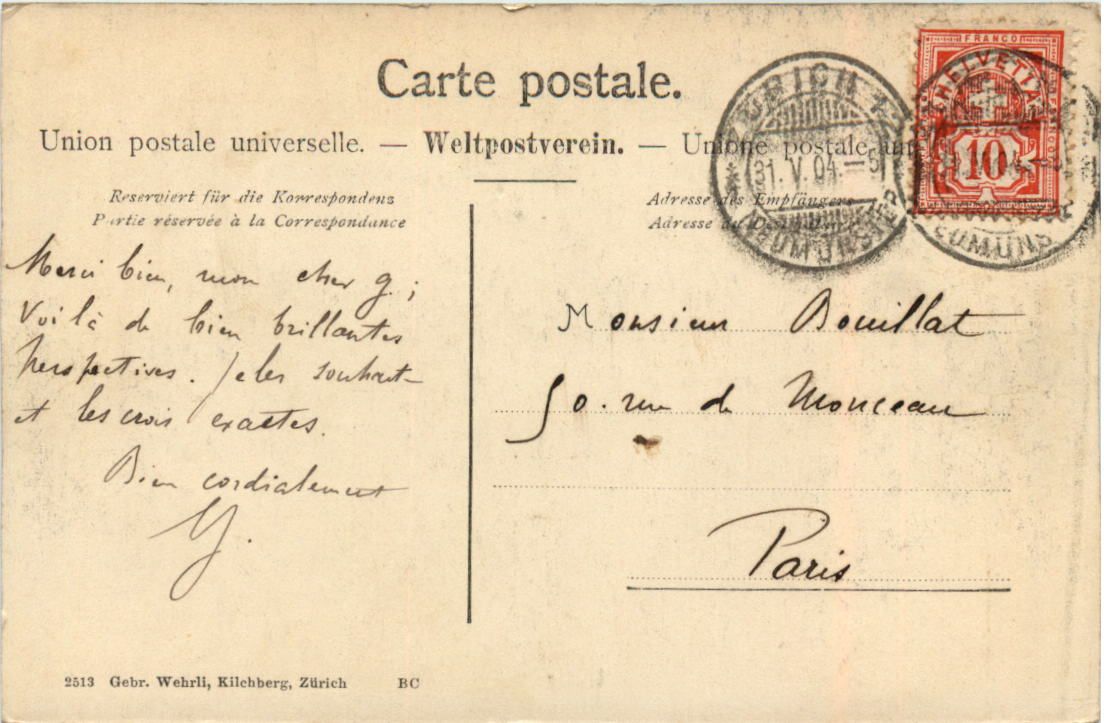 Carte postale.
Union postale universelle. — Weltpostverein. — Unione postale un
Reserviert für die Korrespondenz
Partie réservée à la Correspondance
Adresse des Empfängers
Adresse du
ZÜRICH 12
31.V.04.–5
NEUMÜNSTER
FRANCO
HELVETIA
10
NEUMÜNS
Merci bien, mon cher G ;
Voilà de bien brillantes
perspectives. Je les souhaite
et les crois exactes.
Bien cordialement
Monsieur Bouillat
50. rue de Monceau
Paris
2513 Gebr. Wehrli, Kilchberg, Zürich BC